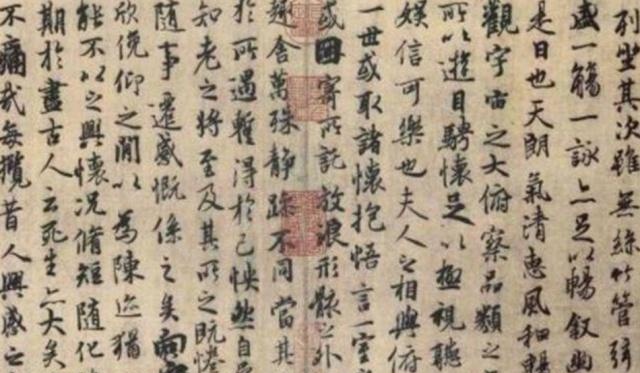 列坐其次雖無絲竹管弦
盛一觴一詠亦足以暢敘幽
是日也天朗氣清惠風和暢
觀宇宙之大俯察品類之
所以遊目騁懷足以極視聽
娛信可樂也夫人之相與俯
一世或取諸懷抱悟言一室
或因寄所託放浪形骸之外
趣舍萬殊靜躁不同當其
於所遇蹔得於己怏然自足
知老之將至及其所之既惓
隨事遷感慨係之矣向
欣俛仰之閒以為陳迹猶
能不以之興懷況脩短隨化
期於盡古人云死生亦大矣
不痛哉每攬昔人興感之